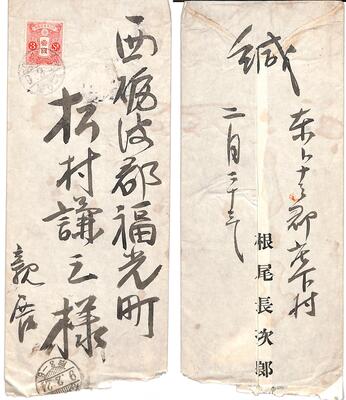 西礪波郡福光町
松村謙三様
親展
緘
東トナミ郡庄下村
根尾長次郎
二月二十三